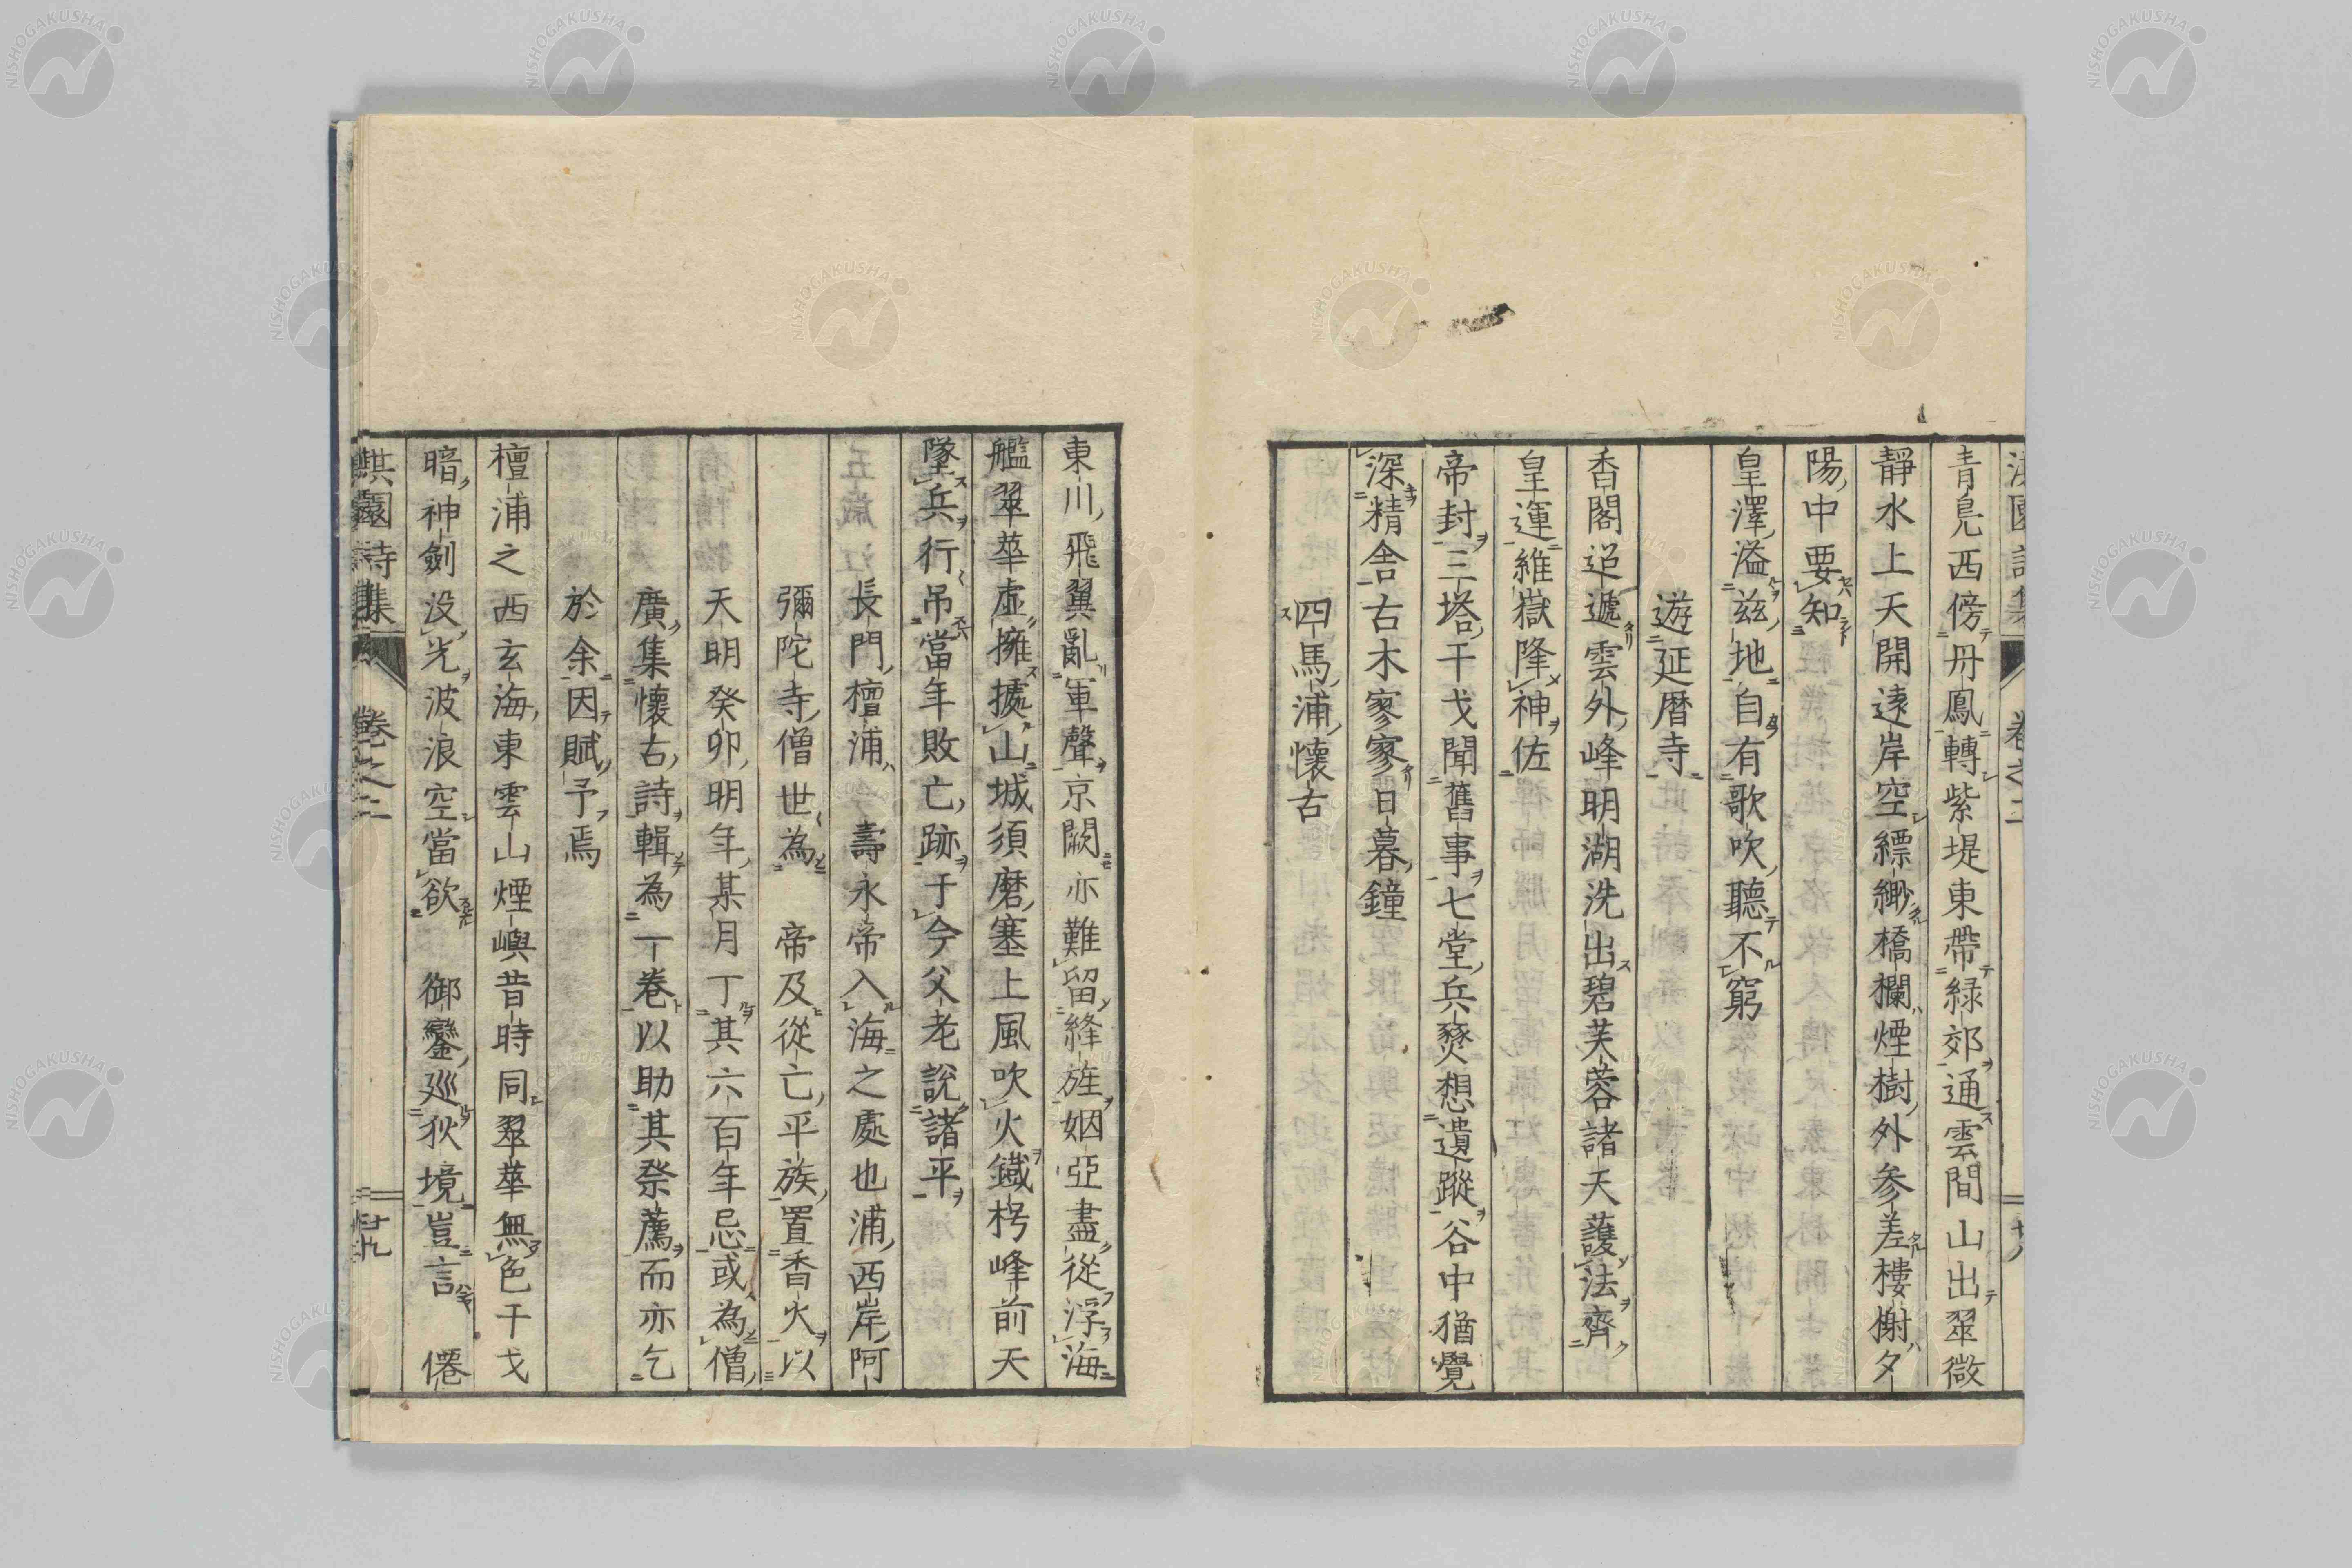 淇園詩集 卷之二 廿八
青鳧西傍丹鳳轉紫堤東帶緑郊通雲間山出翠微
靜水上天開遠岸空縹緲橋欄煙樹外参差樓榭夕
陽中要知
皇澤溢茲地自有歌吹聽不窮
遊延暦寺
香閣迢遞雲外峰明湖洗出碧芙蓉諸天護法齊
皇運維嶽隆神佐
帝封三塔干戈聞舊事七堂兵燹想遺蹤谷中猶覺
深精舎古木寥寥日暮鐘
四馬浦懷古
東川飛翼亂軍聲京闕亦難留絳旌姻亞盡從浮海
艦翠華虚擁據山城須磨塞上風吹火鐡枴峰前天
墜兵行吊當年敗亡跡于今父老説諸平
長門檀浦壽永帝入海之處也浦西岸阿
彌陀寺僧世為 帝及從亡平族置香火以
天明癸卯明年某月丁其六百年忌或為僧
廣集懷古詩輯為一卷以助其祭薦而亦乞
於余因賦予焉
檀浦之西玄海東雲山煙嶼昔時同翠華無色干戈
暗神劍没光波浪空當欲 御鑾廵狄境豈言 僊
淇園詩集 卷之二 廿九